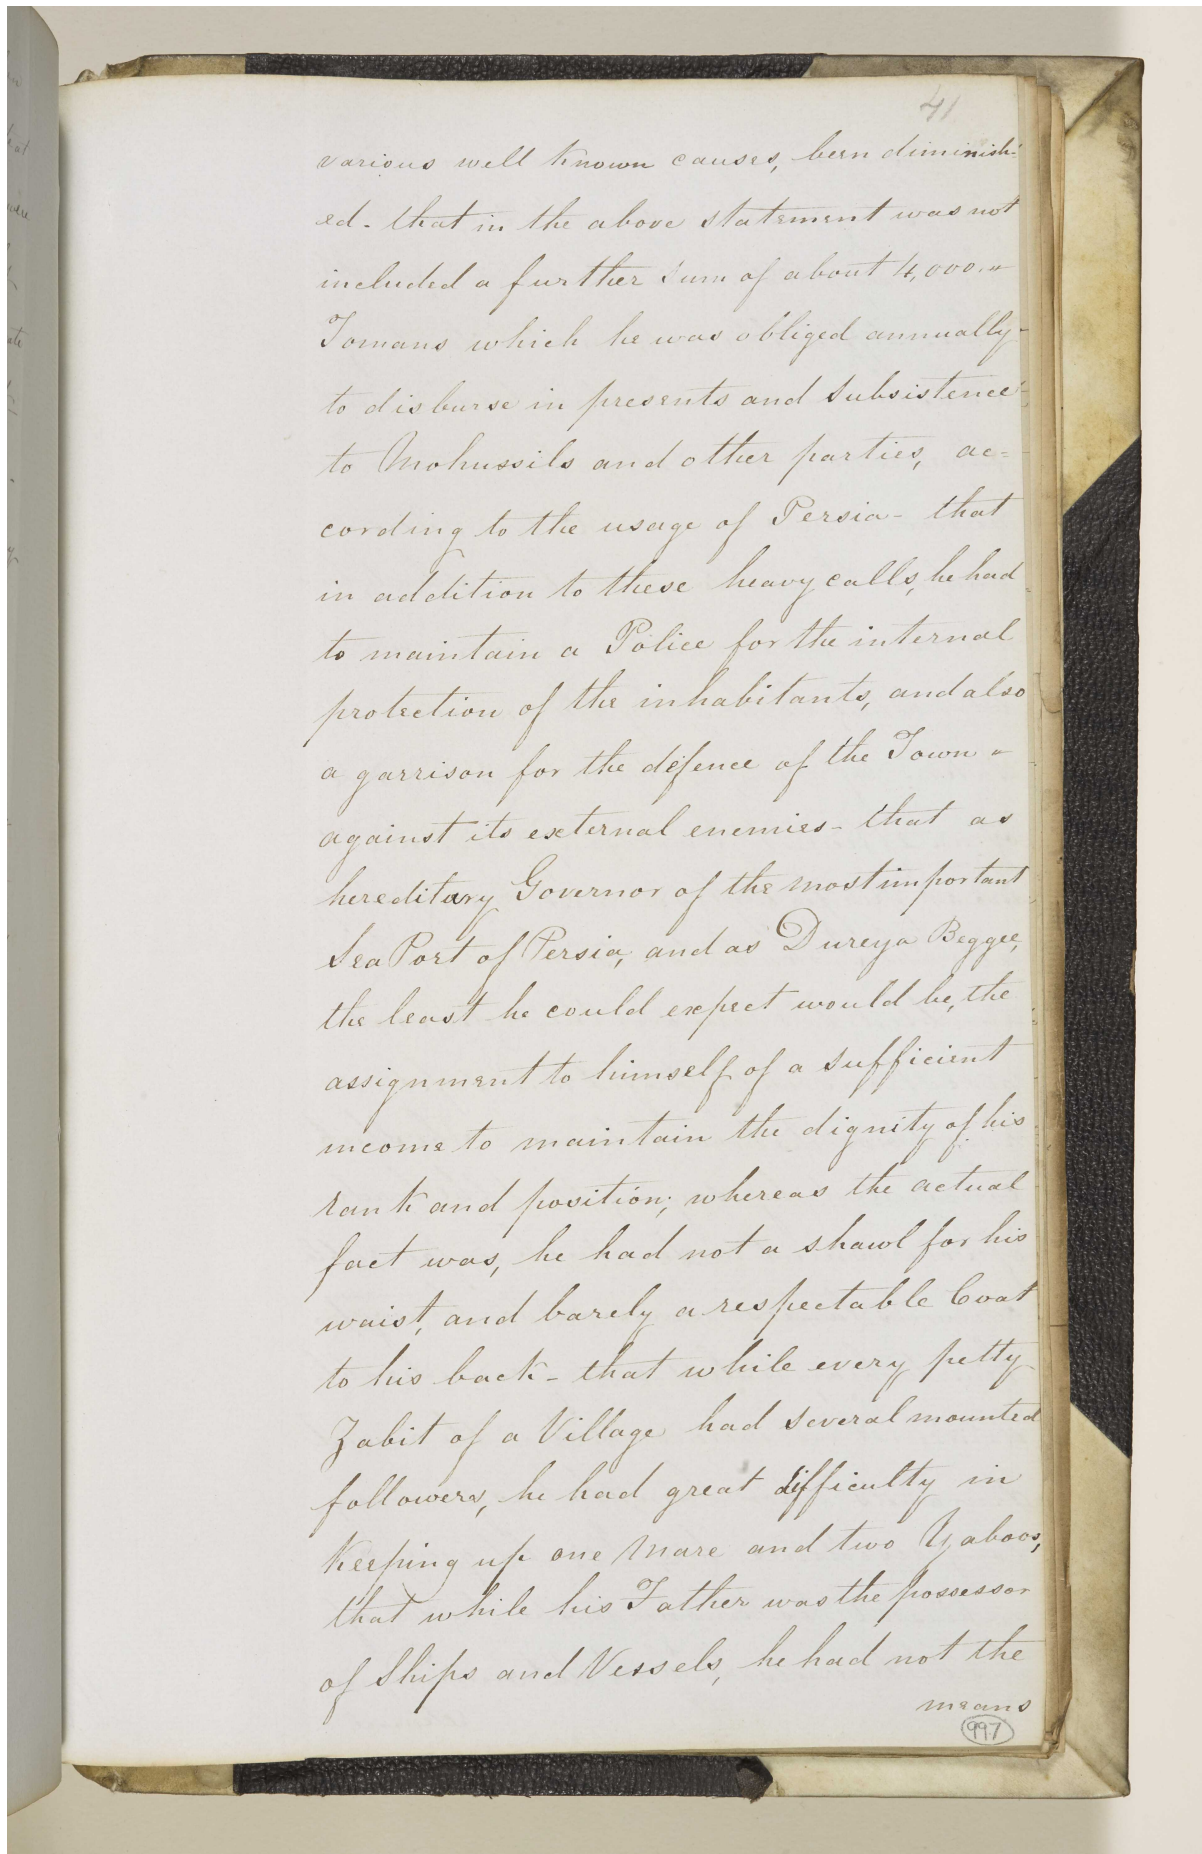 41
various well known causes, been diminish-
ed - that in the above statement was not
included a further sum of about 4,000 "
Tomans which he was obliged annually
to disburse in presents and subsistence
to Mohussils and other parties, ac=
cording to the usage of Persia - that
in addition to these heavy calls, he had
to maintain a Police for the internal
protection of the inhabitants, and also
a garrison for the defence of the Town "
against its external enemies - that as
hereditary Governor of the most important
Sea Port of Persia, and as Dureya Beggee,
the least he could expect would be, the
assignment to himself of a sufficient
income to maintain the dignity of his
rank and position; whereas the actual
fact was, he had not a shawl for his
waist, and barely a respectable Coat
to his back - that while every petty
Zabit of a Village had several mounted
followers, he had great difficulty in
keeping up one Mare and two Yaboos,
that while his Father was the possessor
of Ships and Vessels, he had not the
means
997